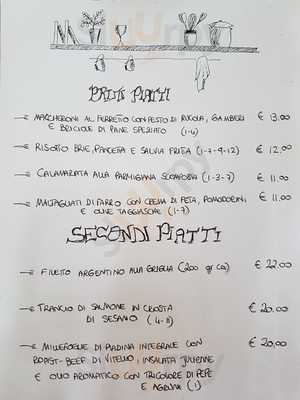 PRIMI PIATTI
MACCHERONI AL FERRETTO CON PESTO DI RUCOLA, GAMBERI € 13.00
E BRICIOLE DI PANE SPEZIATO (1-4)
RISOTTO BRIE, PANCETTA E SALVIA FRITTA (1-7-9-12) € 12,00
CALAMARATA ALLA PARMIGIANA SCOMPOSTA (1-3-7) € 11.00
MALTAGLIATI DI FARRO CON CREMA DI FETA, POMODORINI € 11.00
E OLIVE TAGGIASCHE (1-7)
SECONDI PIATTI
FILETTO ARGENTINO ALLA GRIGLIA (200 gr ca) € 22.00
TRANCIO DI SALMONE IN CROSTA € 20.00
DI SESAMO (4-11)
MILLEFOGLIE DI PIADINA INTEGRALE CON € 20,00
ROAST-BEEF DI VITELLO, INSALATA JULIENNE
E OLIO AROMATICO CON TRICOLORE DI PEPE
E AGRUMI (1)